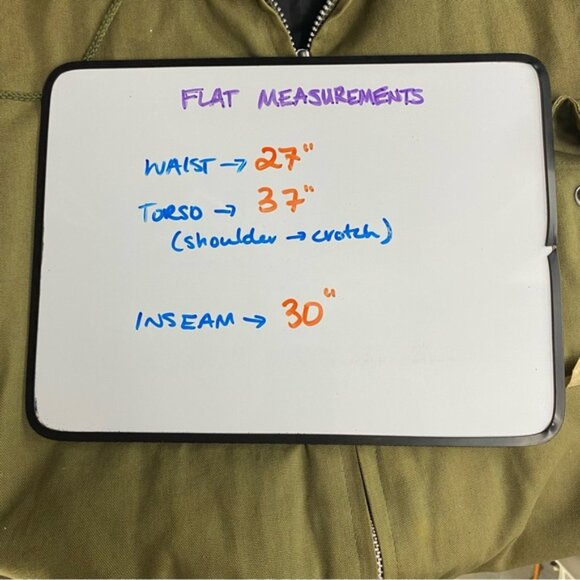 FLAT MEASUREMENTS
WAIST → 27"
TORSO → 37"
(shoulder → crotch)
INSEAM → 30"